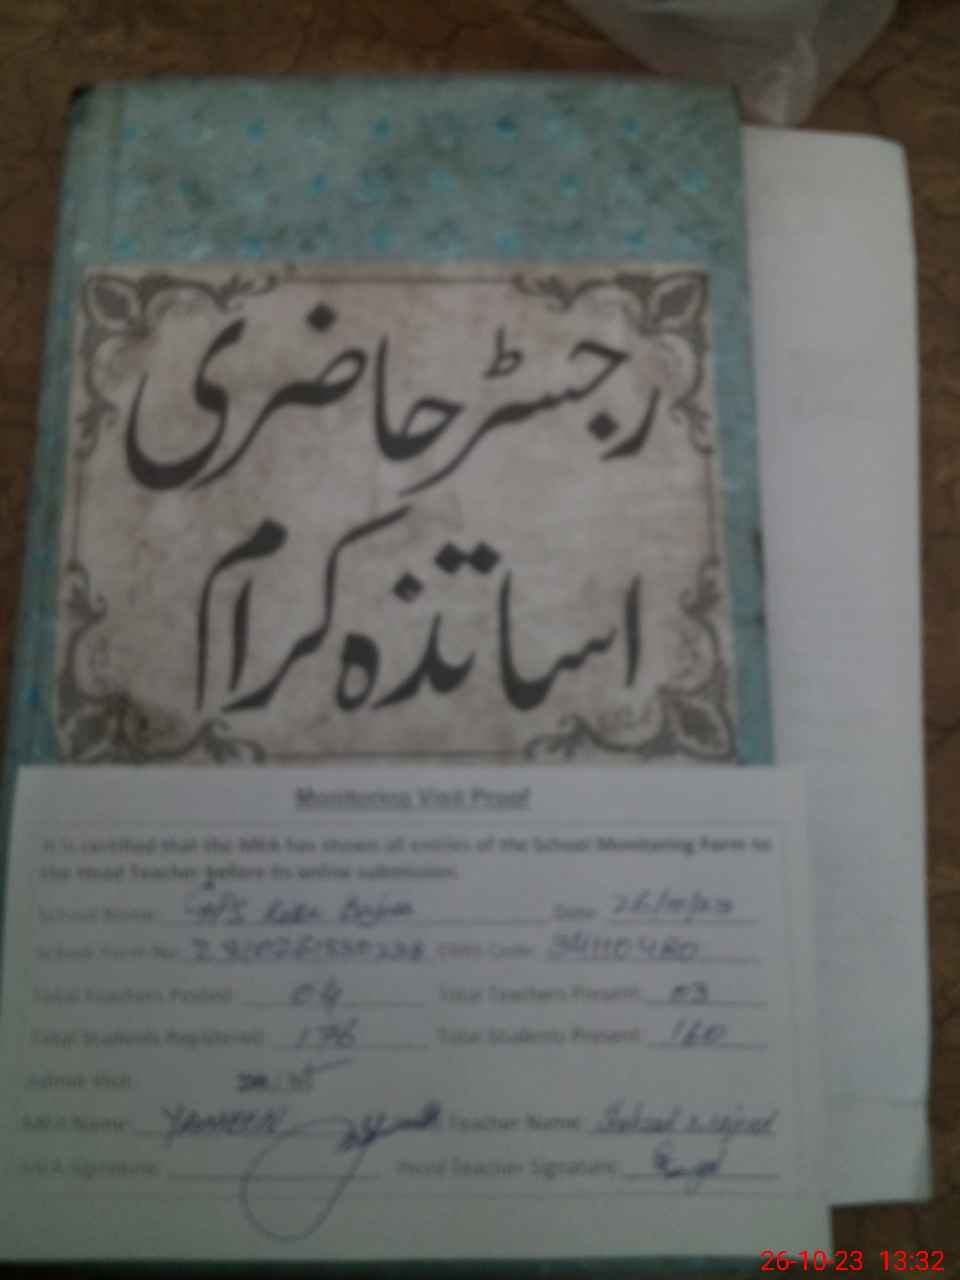 رجسٹر حاضری
اساتذہ کرام
Monitoring Visit Proof
It is certified that the MEA has shown all entries of the School Monitoring Form to
the Head Teacher before its online submission.
School Name: Date: 26/10/23
School Form No: EMIS Code: 34110480
Total Teachers Posted: 04 Total Teachers Present: 03
Total Students Registered: 176 Total Students Present: 160
Admin Visit:
MEA Name: YAMEEN Teacher Name:
MEA Signature: Head Teacher Signature:
26-10-23 13:32